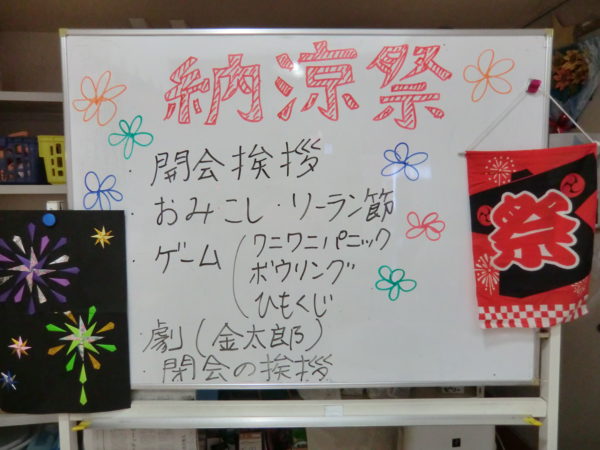 納涼祭
・開会挨拶
・おみこし・ソーラン節
・ゲーム(ワニワニパニック
ボウリング
ひもくじ
・劇(金太郎)
閉会の挨拶
祭